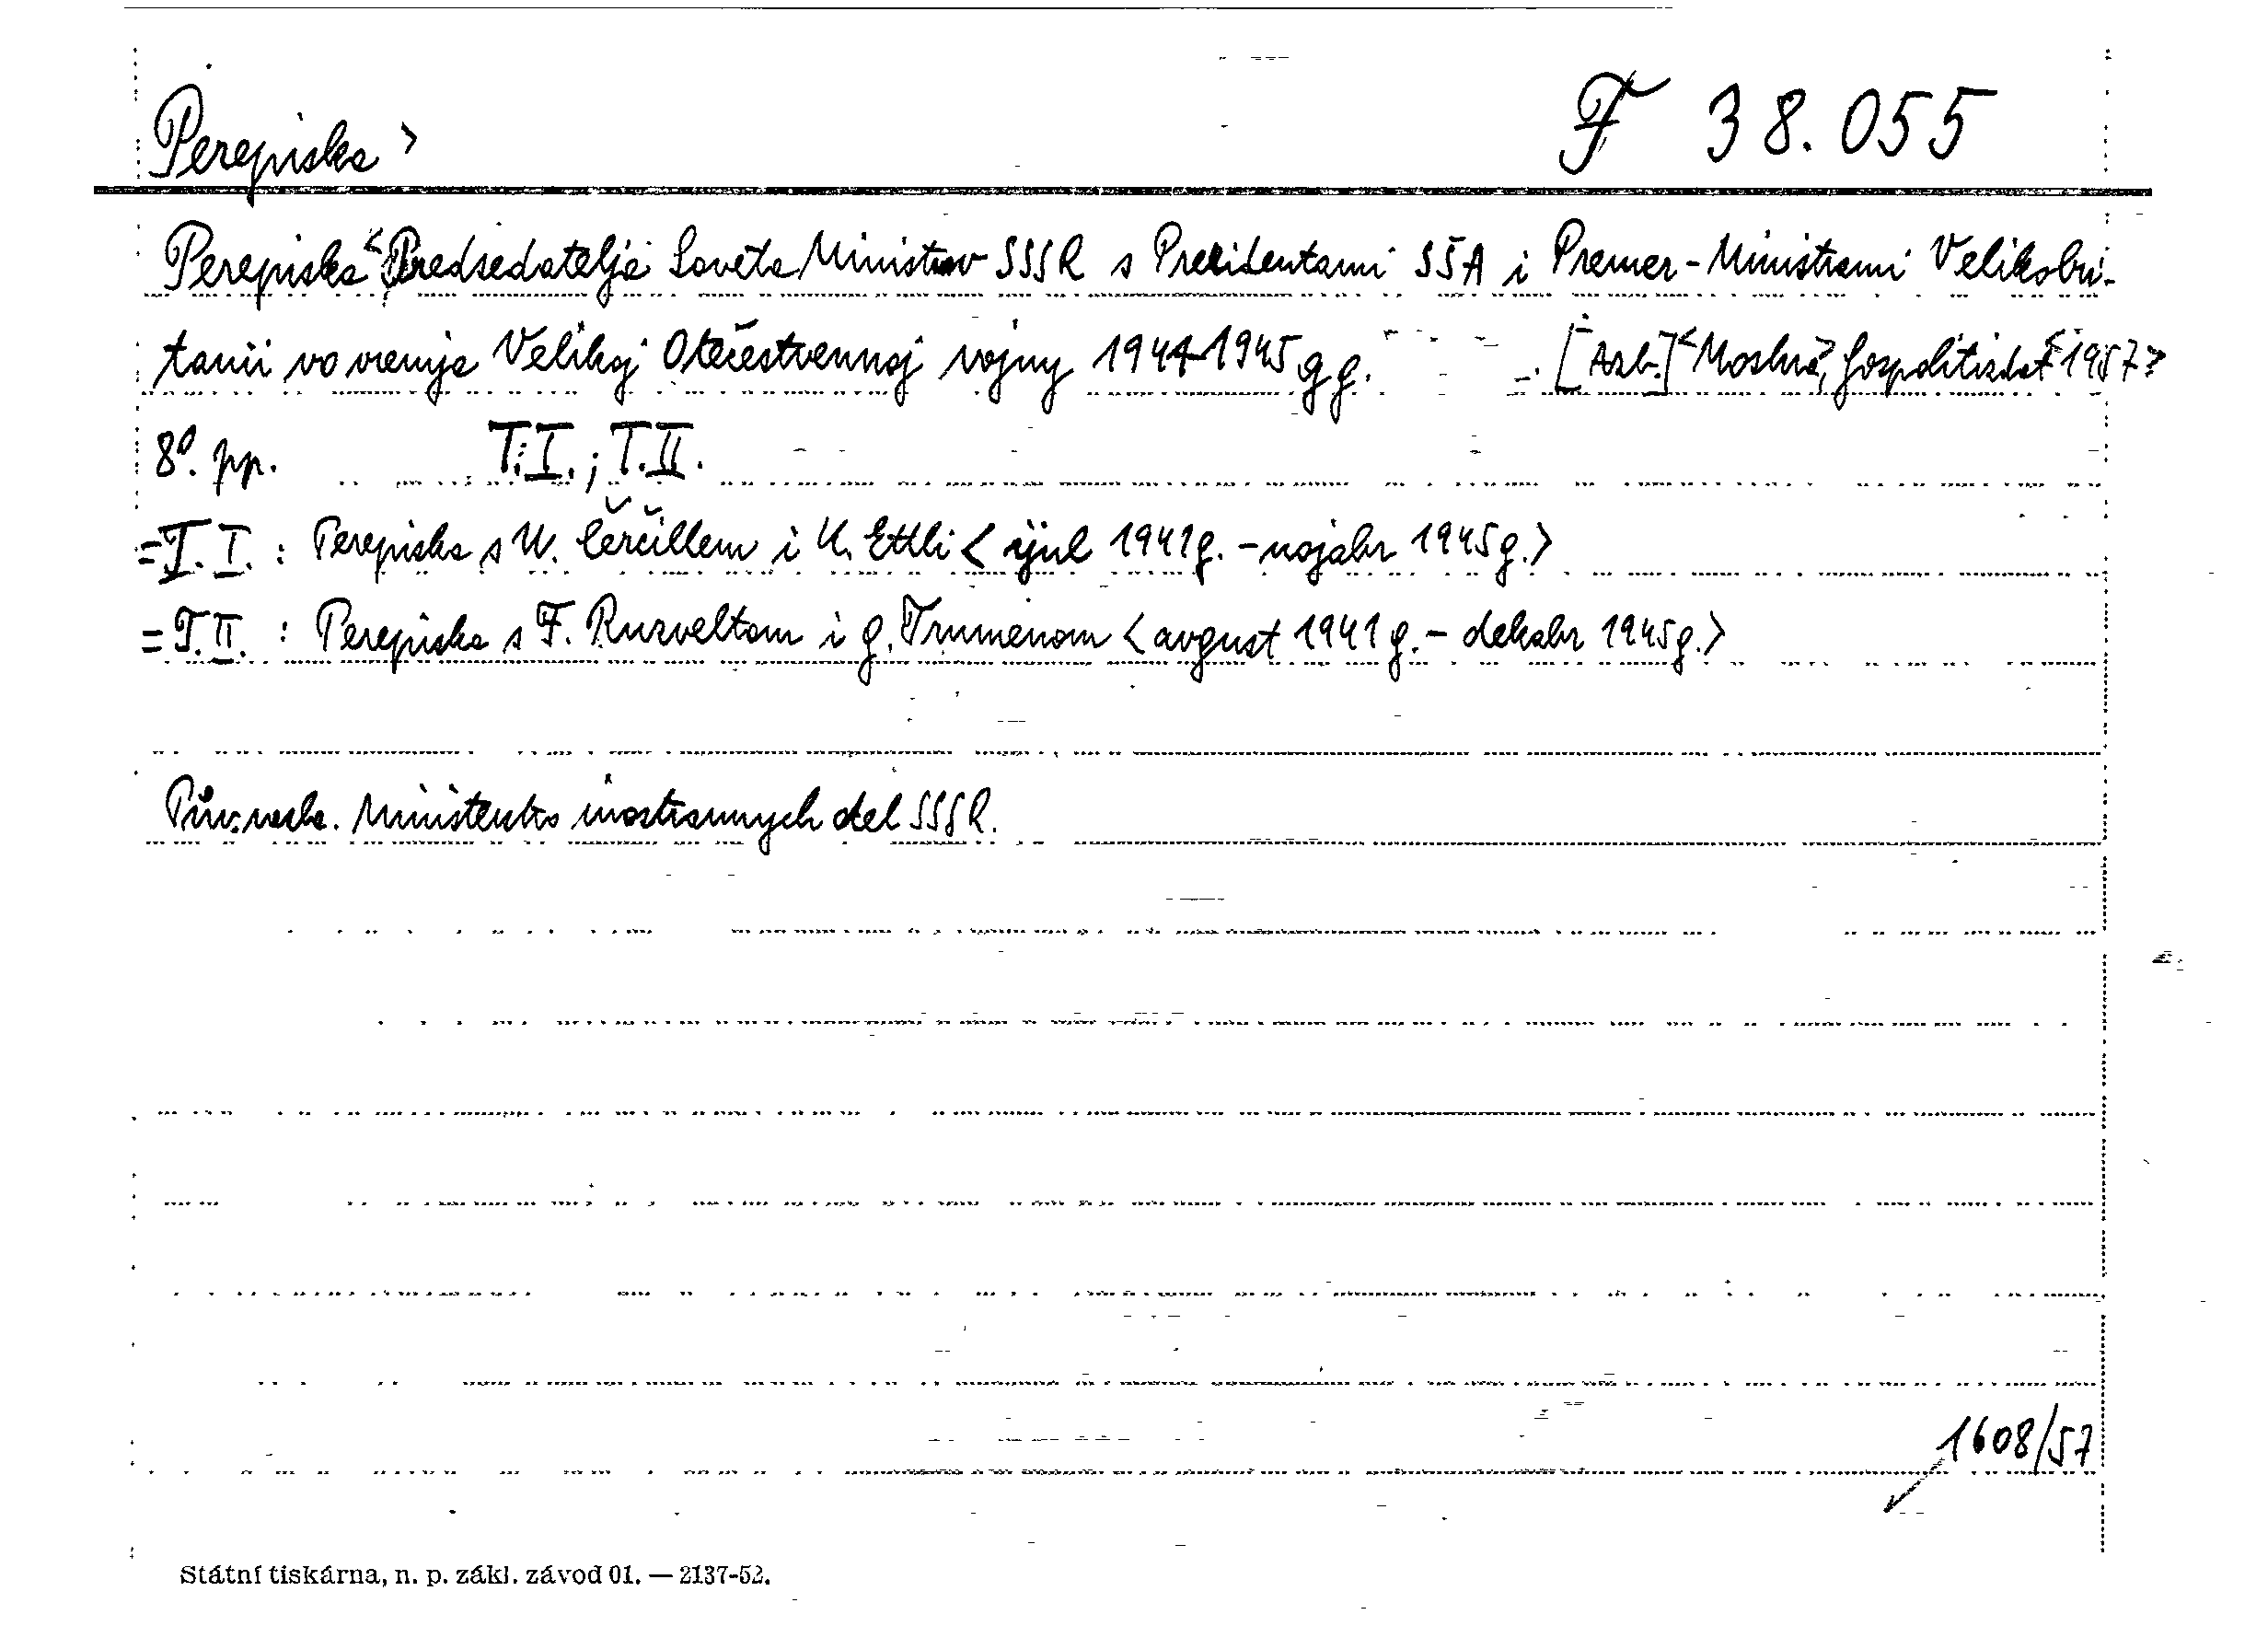 Perepiska >
F 38.055
Perepiska < Predsedatelja Soveta Ministrov SSSR s Prezidentami SŠA i Premer-Ministrami Velikobri-
tanii vo vremja Velikoj Otečestvennoj vojny 1941-1945 gg. - [Azb.] < Moskva >, Gospolitizdat < 1957 >
8°. pp. T.I.; T.II.
= T.I. : Perepiska s U. Čerčillem i K. Ettli < ijul 1941 g. - nojabr 1945 g. >
= T.II. : Perepiska s F. Ruzveltom i g. Trumenom < avgust 1941 g. - dekabr 1945 g. >
Ministerstvo inostrannych del SSSR.
1608/57
Státní tiskárna, n. p. zákl. závod 01. — 2137-52.